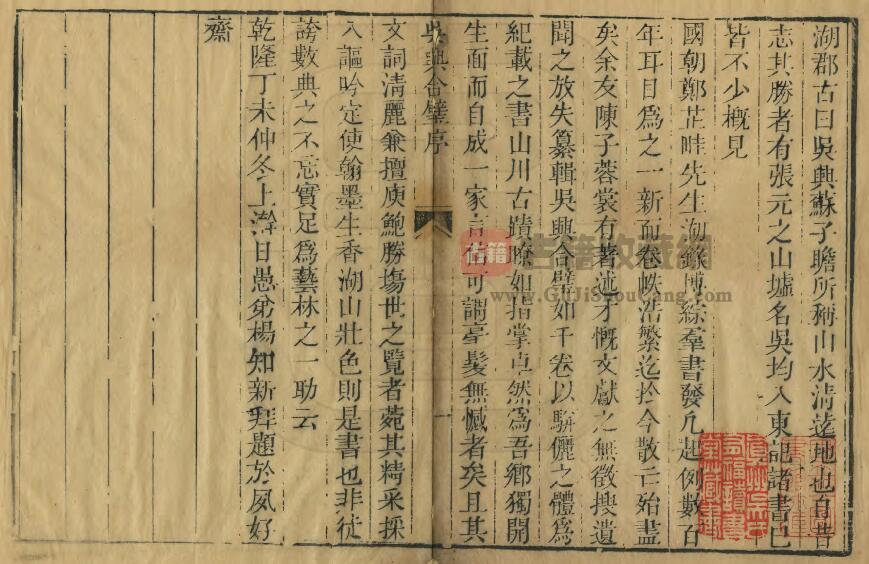 湖郡古曰吳興蘇子瞻所稱山水清遠地也自昔
志其勝者有張元之山墟名吳均入東記諸書已
皆不少概見
國朝鄭芷畦先生湖錄博綜羣書發凡起例數百
年耳目爲之一新而卷帙浩繁迄於今散亡殆盡
矣余友陳子蓉裳有著述才慨文獻之無徵搜遺
聞之放失纂輯吳興合璧如千卷以騈儷之體爲
紀載之書山川古蹟瞭如指掌卓然爲吾鄉獨開
生面而自成一家言 可謂毫髮無憾者矣且其
吳興合璧序
一
文詞清麗兼擅庾鮑勝塲世之覽者菀其精采採
入謳吟定使翰墨生香湖山壯色則是書也非徒
誇數典之不忘實足爲藝林之一助云
乾隆丁未仲冬上澣日愚弟楊知新拜題於夙好
齋
古籍
古籍收藏網
www.GuJiShouCang.com